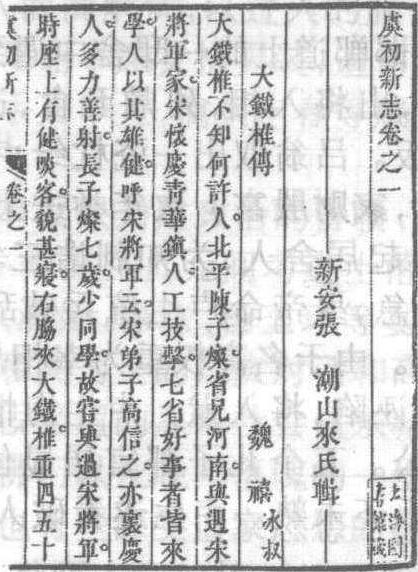 虞初新志卷之一
新安張　潮山來氏輯
大鐵椎傳　　　魏　禧冰叔
大鐵椎不知何許人北平陳子燦省兄河南與遇宋
將軍家宋懷慶青華鎮人工技擊七省好事者皆來
學人以其雄健呼宋將軍云宋弟子高信之亦懷慶
人多力善射長子燦七歲少同學故嘗與過宋將軍
時座上有健啖客貌甚寢右脇夾大鐵椎重四五十
虞初新志
卷之一